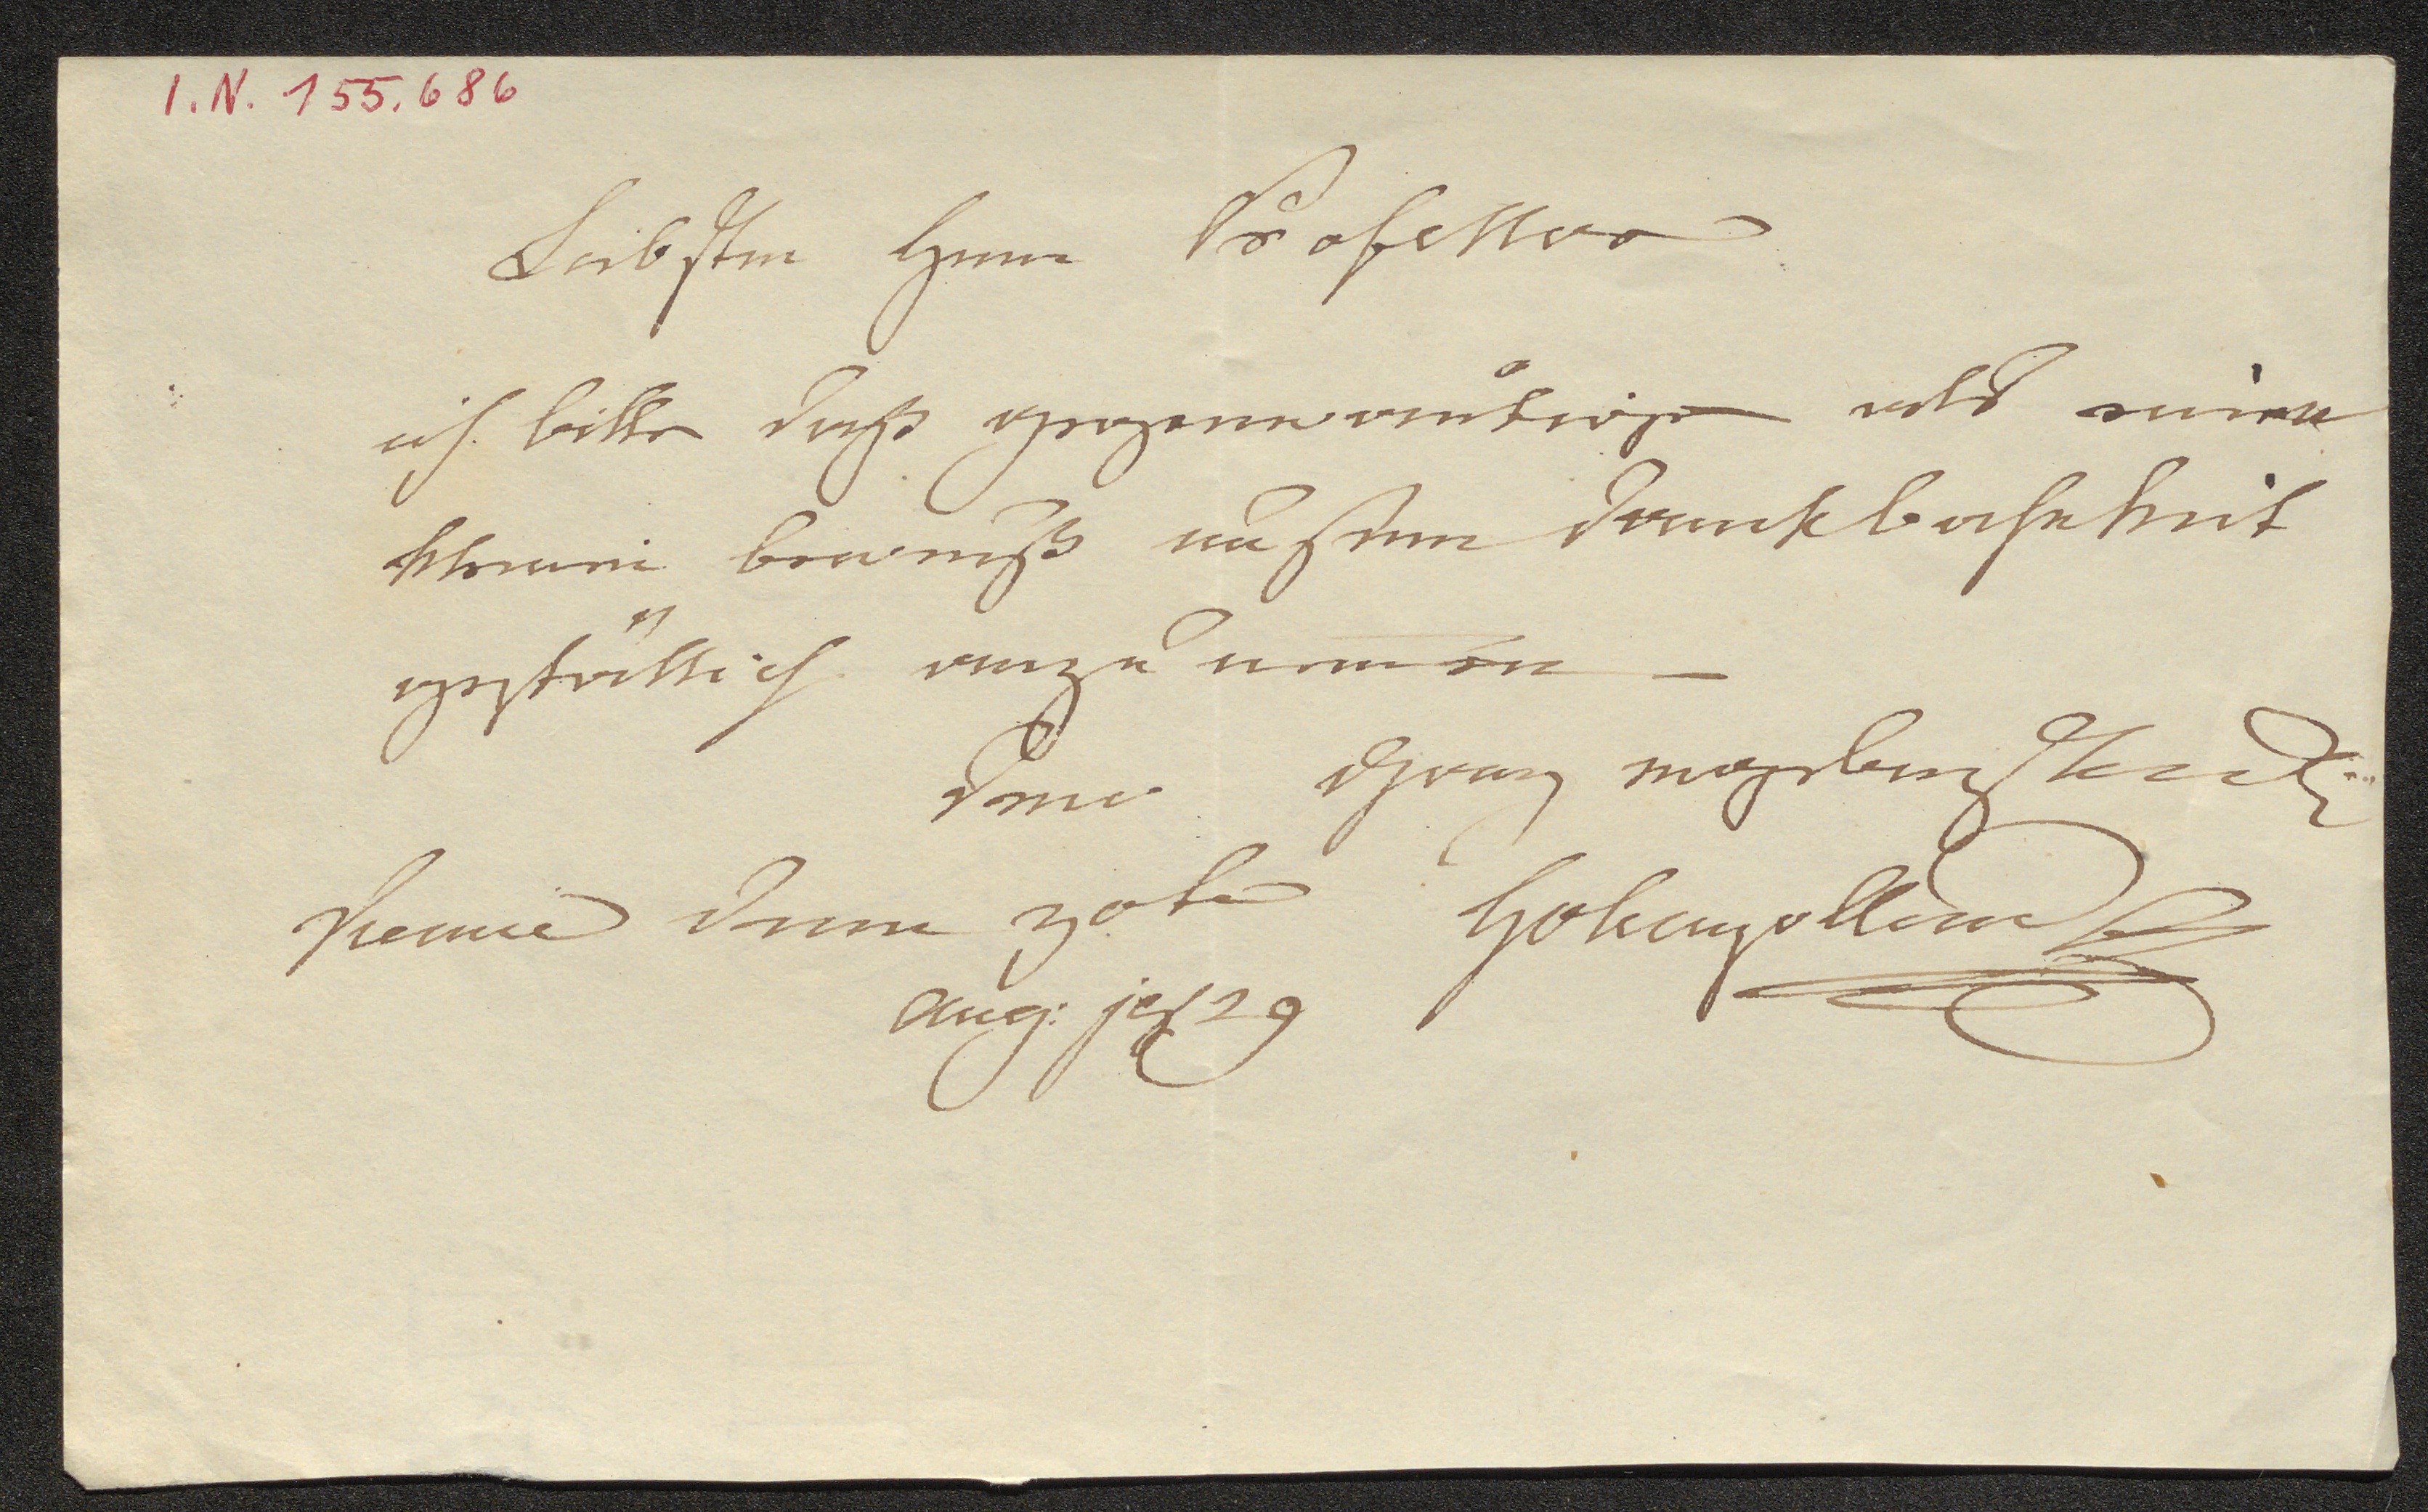 I.N. 155.686
Liebster Herr Professor
ich bitte daß gegenwärtige als einen
kleinen beweiß meiner danckbahrkeit
gefällich anzunemen –
Dero ganz ergebenster
Wienn den aug: 29
Hohenzollern